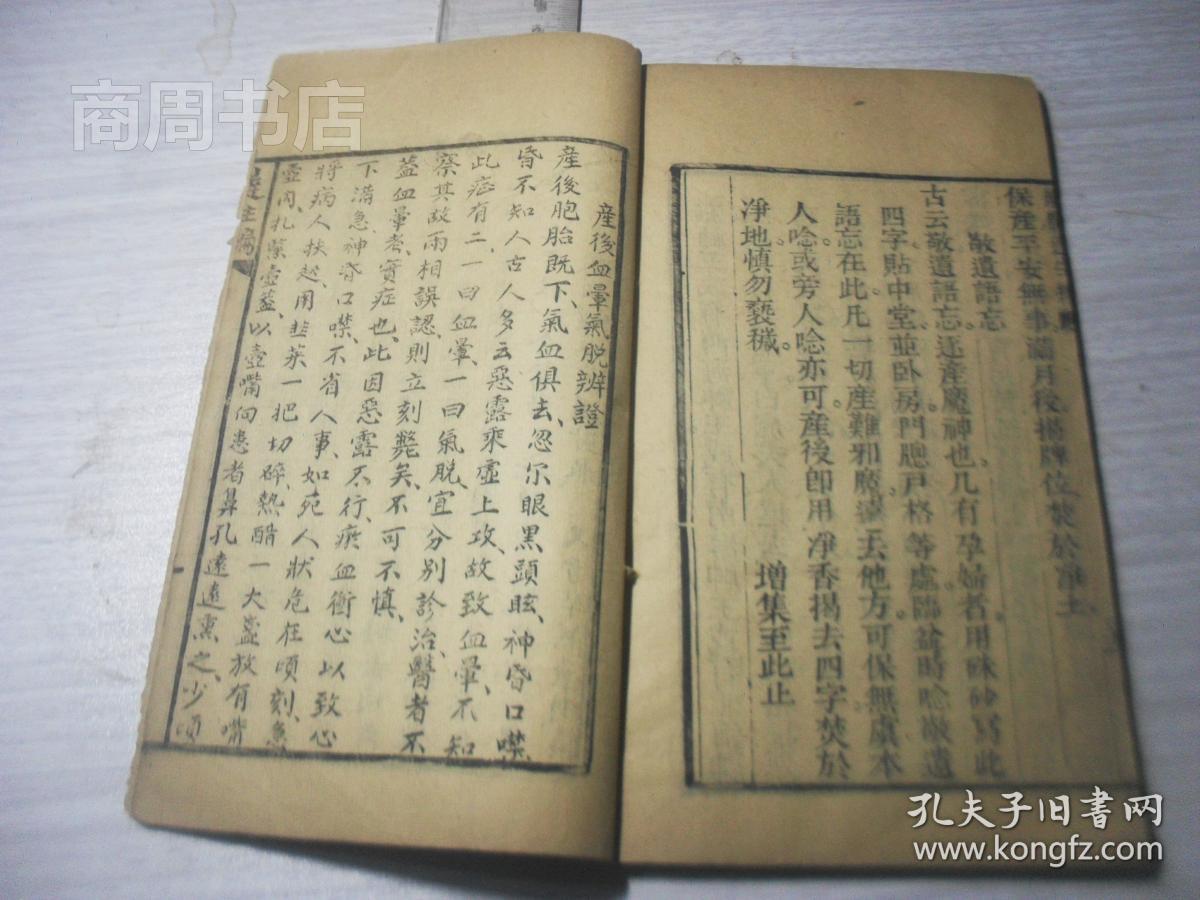 商周书店
保產平安無事滿月後揭牌位焚於淨土
敬遺語忘
古云敬遺語忘迋產魔神也凡有孕婦者用硃砂寫此
四字貼中堂並卧房門牕戸格等處臨盆時唸敬遺
語忘在此凡一切產難邪魔遠去他方可保無虞本
人唸或旁人唸亦可產後卽用淨香揭去四字焚於
淨地慎勿褻穢。
增集至此止
產後血暈氣脫辨證
產後胞胎既下、氣血俱去、忽尔眼黑、頭眩、神昏口噤、
昏不知人古人多云惡露乘虛上攻、故致血暈、不知
此症有二、一曰血暈、一曰氣脫、宜分别診治、醫者不
察其故、兩相誤認、則立刻斃矣、不可不慎、
蓋血暈者、實症也、此因惡露不行、瘀血衝心以致心
下滿急、神昏口噤、不省人事、如死人狀危在頃刻、急
將病人扶起、用韭菜一把切碎、熱醋一大盞放有嘴
壺内、扎緊壺蓋、以壺嘴向患者鼻孔遠遠熏之、少頃
達生編
孔夫子旧书网
www.kongfz.com